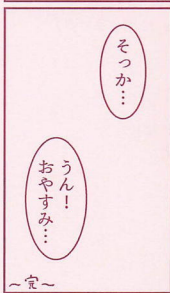 そっか…
うん！
おやすみ…
～完～